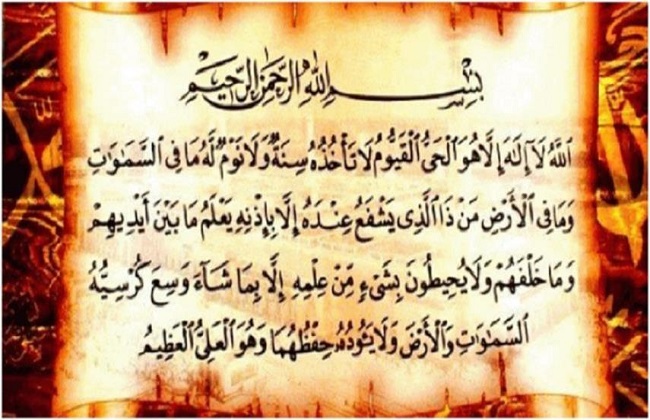 بِسْمِ اللهِ الرَّحْمَنِ الرَّحِيمِ
اللَّهُ لَا إِلَهَ إِلَّا هُوَ الْحَيُّ الْقَيُّومُ لَا تَأْخُذُهُ سِنَةٌ وَلَا نَوْمٌ لَّهُ مَا فِي السَّمَٰوَٰتِ
وَمَا فِي الْأَرْضِ مَن ذَا الَّذِي يَشْفَعُ عِنْدَهُ إِلَّا بِإِذْنِهِ يَعْلَمُ مَا بَيْنَ أَيْدِيهِمْ
وَمَا خَلْفَهُمْ وَلَا يُحِيطُونَ بِشَيْءٍ مِّنْ عِلْمِهِ إِلَّا بِمَا شَآءَ وَسِعَ كُرْسِيُّهُ
السَّمَٰوَٰتِ وَالْأَرْضَ وَلَا يَئُودُهُ حِفْظُهُمَا وَهُوَ الْعَلِيُّ الْعَظِيمُ